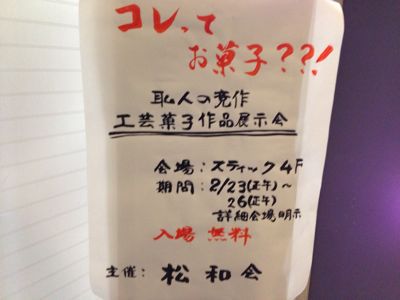 コレって
お菓子???!
職人の競作
工芸菓子作品展示会
会場:スティック4F
期間:2/23(正午)~
26(正午)
詳細会場明示
入場 無料
主催: 松和会